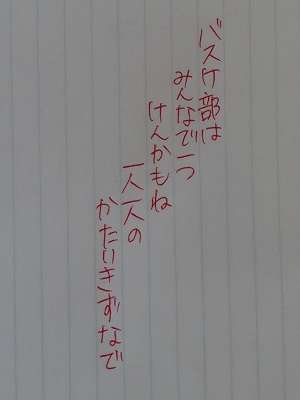 バスケ部は
みんなで一つ
けんかもね
一人一人の
かたいきずなで